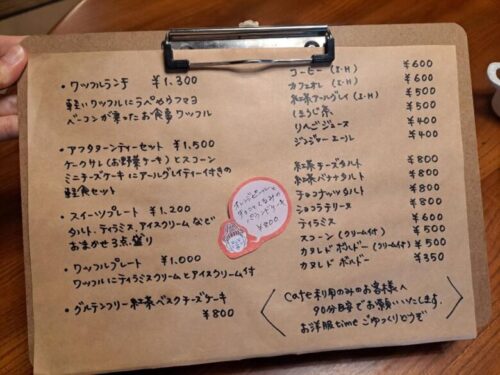 ・ワッフルランチ ¥1,300
軽いワッフルにラペやウフマヨ
ベーコンが乗ったお食事ワッフル
・アフタヌーンティーセット ¥1,500
ケークサレ（お野菜ケーキ）とスコーン
ミニチーズケーキにアールグレイティー付きの
軽食セット
・スイーツプレート ¥1,200
タルト、ティラミス、アイスクリームなど
おまかせ3点盛り
・ワッフルプレート ¥1,000
ワッフルにティラミスクリームとアイスクリーム付
・グルテンフリー紅茶バスクチーズケーキ
¥800
オレンジピールと
くるみの
パウンドケーキ
¥800
コーヒー（I・H） ¥600
カフェオレ（I・H） ¥600
紅茶アールグレイ（I・H） ¥500
ほうじ茶 ¥500
りんごジュース ¥400
ジンジャーエール ¥400
紅茶チーズタルト ¥800
紅茶バナナタルト ¥800
チョコナッツタルト ¥800
ショコラテリーヌ ¥800
ティラミス ¥600
スコーン（クリーム付） ¥500
カヌレド ボルドー（クリーム付） ¥500
カヌレド ボルドー ¥350
Cafe利用のみのお客様へ
90分目安でお願いいたします。
お洋服timeごゆっくりどうぞ